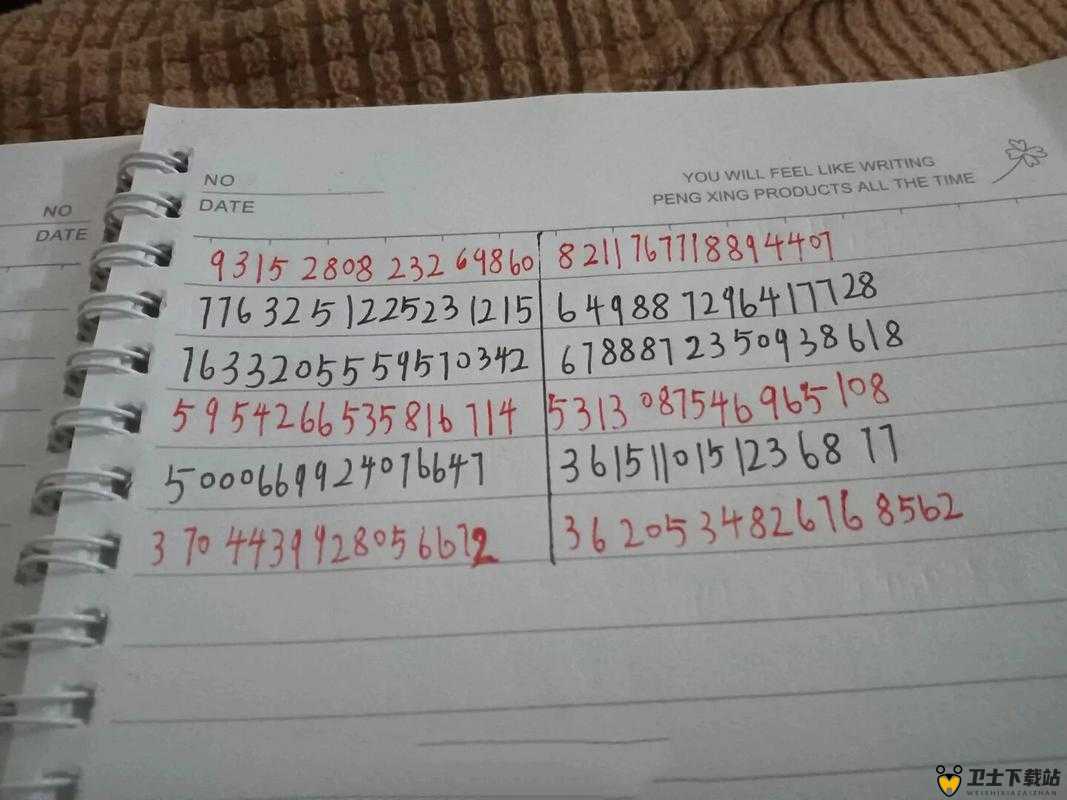 NO
DATE
NO
DATE
YOU WILL FEEL LIKE WRITING
PENG XING PRODUCTS ALL THE TIME
93152808 232 69860 8211767718894407
7763251225231215 6498872964177728
7633205559570342 6788872350938618
5954266535816714 5313087546965108
5000669924076647 3615110151236877
3704439928056672 3620534826768562
卫士下载站
WEISHIXIAZAIZHAN